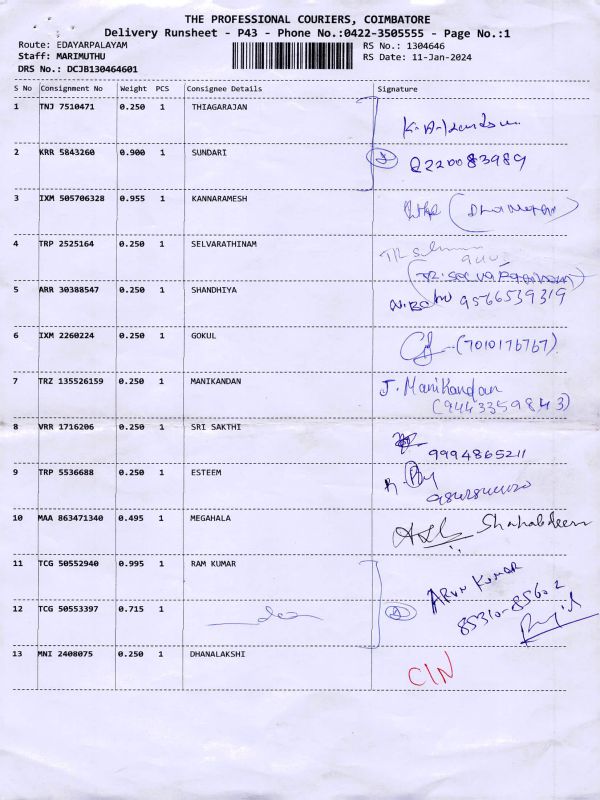 THE PROFESSIONAL COURIERS, COIMBATORE
Delivery Runsheet - P43 - Phone No.:0422-3505555 - Page No.:1
Route: EDAYARPALAYAM RS No.: 1304646
Staff: MARIMUTHU RS Date: 11-Jan-2024
DRS No.: DCJB130464601
S No Consignment No Weight PCS Consignee Details Signature
1 TNJ 7510471 0.250 1 THIAGARAJAN
2 KRR 5843260 0.900 1 SUNDARI 8220083989
3 IXM 505706328 0.955 1 KANNARAMESH
4 TRP 2525164 0.250 1 SELVARATHINAM
5 ARR 30388547 0.250 1 SHANDHIYA 9566539319
6 IXM 2260224 0.250 1 GOKUL (7010176767)
7 TRZ 135526159 0.250 1 MANIKANDAN J. Manikandan
(9443359843)
8 VRR 1716206 0.250 1 SRI SAKTHI 9994865211
9 TRP 5536688 0.250 1 ESTEEM
10 MAA 863471340 0.495 1 MEGAHALA Shahabdeen
11 TCG 50552940 0.995 1 RAM KUMAR ARUN KUMAR
12 TCG 50553397 0.715 1 85310-85602
13 MNI 2408075 0.250 1 DHANALAKSHI CIN